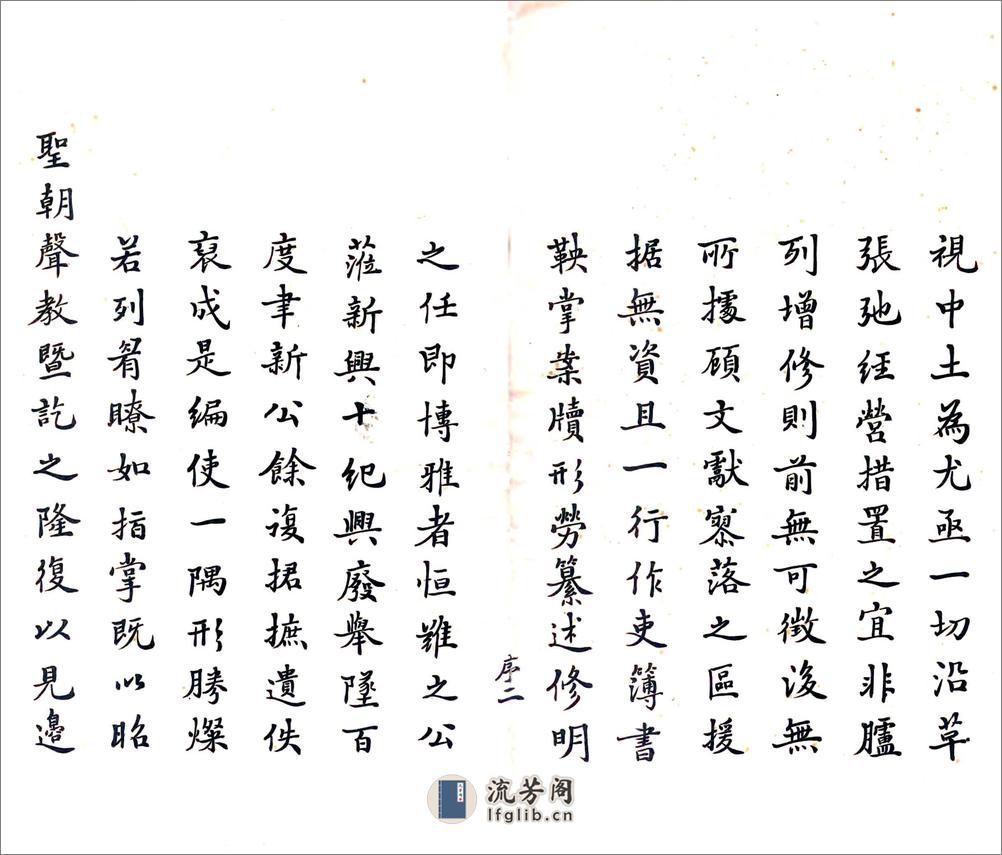 視中土為尤亟一切沿革
張弛経營措置之宜非臚
列增修則前無可徴後無
所據顧文獻寥落之區援
据無資且一行作吏簿書
鞅掌案牘形勞纂述修明
序二
之任即博雅者恒難之公
蒞新興十紀興廢舉墜百
度聿新公餘復捃摭遺佚
裒成是编使一隅形勝燦
若列眉瞭如指掌既以昭
聖朝聲教暨訖之隆復以見邉
流芳阁
lfglib.cn